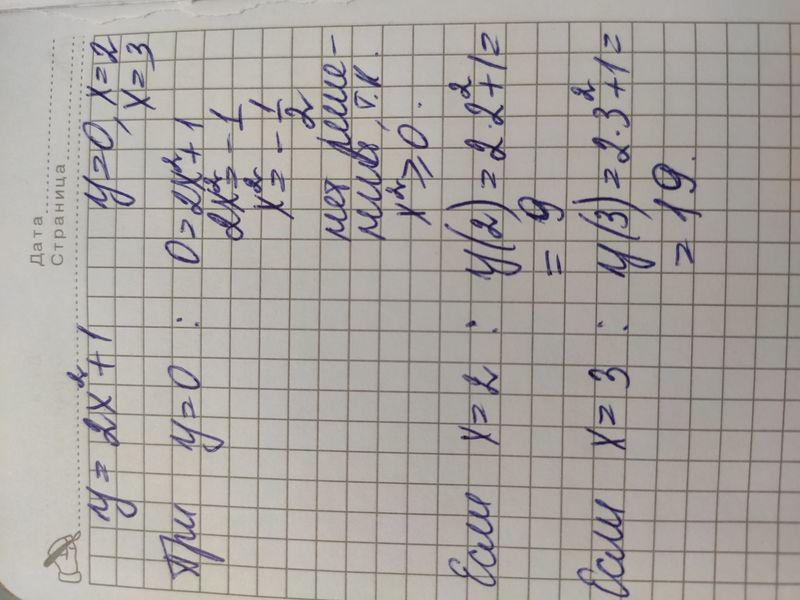 Дата
Страница
y = 2x² + 1 y=0, x=2
x=3
При y=0 : 0=2x²+1
2x²=-1
x²=-1/2
нет реше-
ния, т.к.
x²⩾0.
Если x=2 : y(2)=2·2²+1=
= 9
Если x=3 : y(3)=2·3²+1=
= 19.